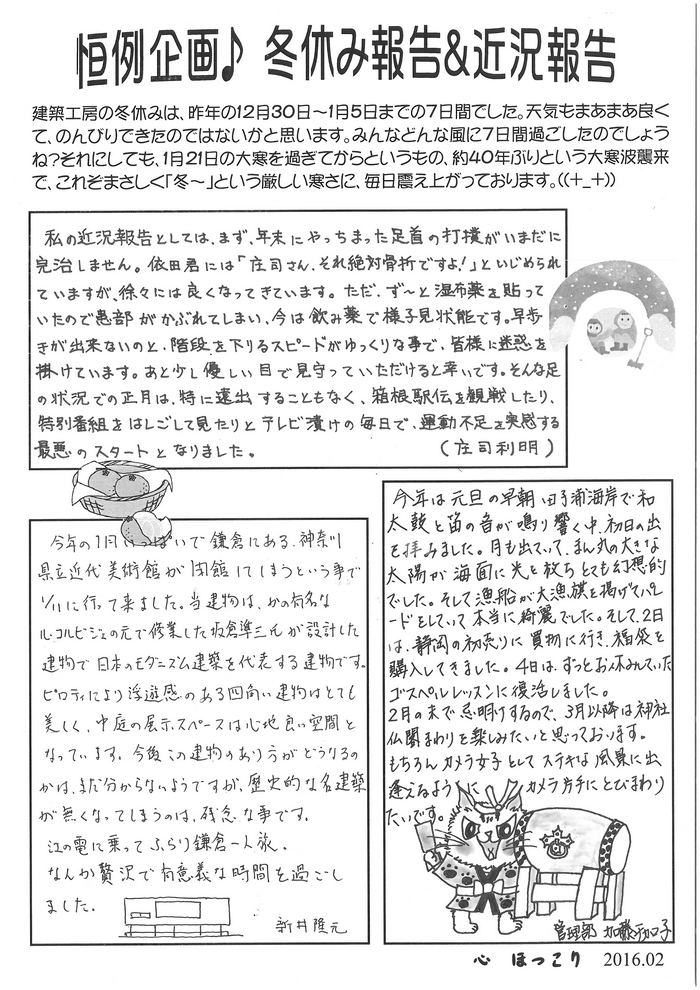 恒例企画♪ 冬休み報告&近況報告
建築工房の冬休みは、昨年の12月30日～1月5日までの7日間でした。天気もまあまあ良く
て、のんびりできたのではないかと思います。みんなどんな風に7日間過ごしたのでしょう
ね?それにしても、1月21日の大寒を過ぎてからというもの、約40年ぶりという大寒波襲来
で、これぞまさしく「冬～」という厳しい寒さに、毎日震え上がっております。((+_+))
私の近況報告としては、まず、年末にやっちまった足首の打撲がいまだに
完治しません。依田君には「庄司さん、それ絶対骨折ですよ!」といじめられ
ていますが、徐々には良くなってきています。ただ、ず～と湿布薬を貼って
いたので患部がかぶれてしまい、今は飲み薬で様子見状態です。早歩
きが出来ないのと、階段を下りるスピードがゆっくりな事で、皆様に迷惑を
掛けています。あと少し優しい目で見守っていただけると幸いです。そんな足
の状況での正月は、特に遠出することもなく、箱根駅伝を観戦したり、
特別番組をはしごして見たりとテレビ漬けの毎日で、運動不足を実感する
最悪のスタートとなりました。 (庄司利明)
今年の1月いっぱいで鎌倉にある、神奈川
県立近代美術館が閉館してしまうという事で
1/11に行って来ました。当建物は、かの有名な
ル・コルビジェの元で修業した坂倉準三元が設計した
建物で日本のモダニズム建築を代表する建物です。
ピロティにより浮遊感のある四角い建物はとても
美しく、中庭の展示スペースは心地良い空間と
なっています。今後この建物のあり方がどうなるの
かは、まだ分からないようですが、歴史的な名建築
が無くなってしまうのは、残念な事です。
江の電に乗ってふらり鎌倉一人旅、
なんか贅沢で有意義な時間を過ごし
ました。
新井隆元
今年は元旦の早朝 田子浦海岸で和
太鼓と笛の音が鳴り響く中、初日の出
を拝みました。月も出ていて、まん丸の大きな
太陽が海面に光を放ちとても幻想的
でした。そして漁船が大漁旗を掲げてパレ
ードをしていて本当に綺麗でした。そして、2日
は、静岡の初売りに買物に行き、福袋を
購入してきました。4日は、ずっとお休みしていた
ゴスペルレッスンに復活しました。
2月の末で忌明けするので、3月以降は神社
仏閣まわりを楽しみたいと思っております。
もちろんカメラ女子としてステキな風景に出
逢えるように カメラ片手にとびまわり
たいです。
管理部 加藤
心 ほっこり 2016.02